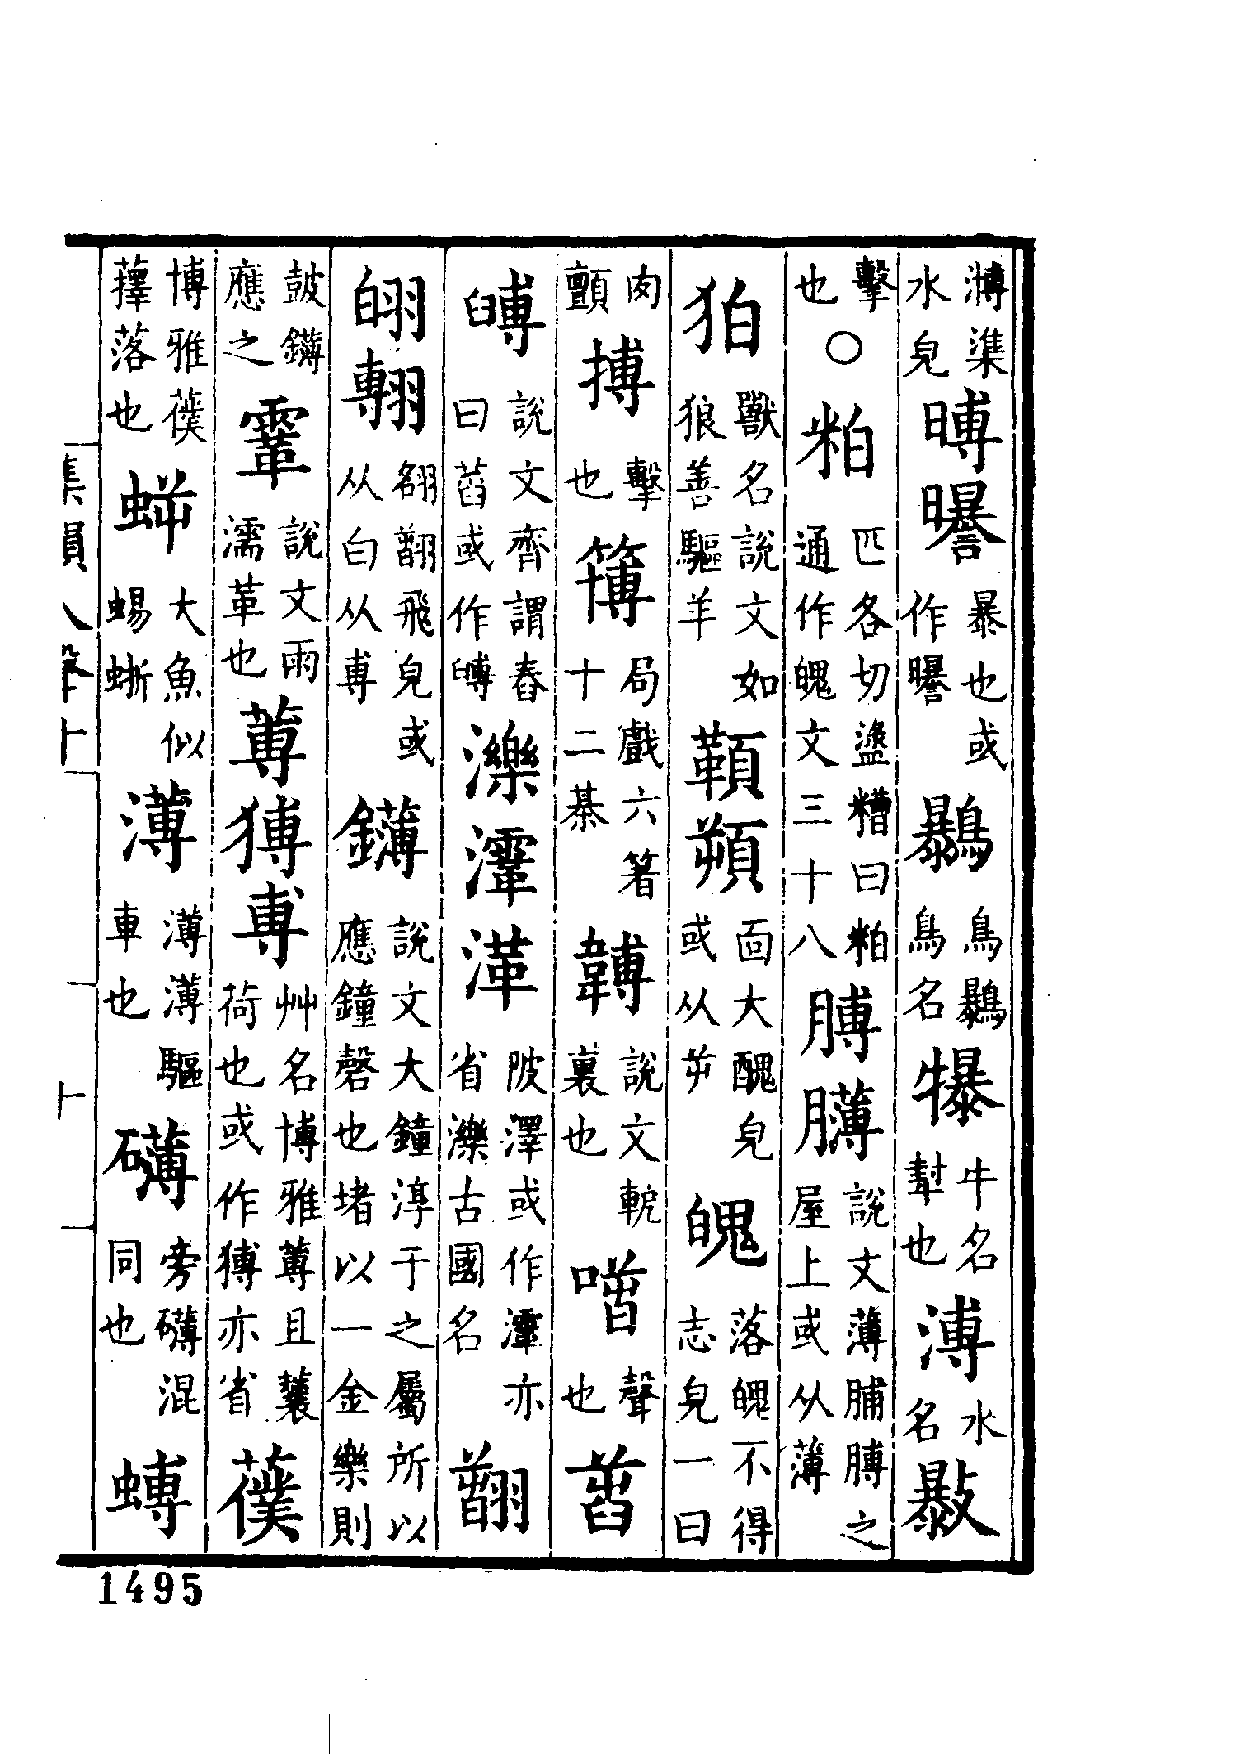 㶈㵵水皃㬍㬧暴也或作㬧鸔鳥鸔鳥名犦牛名犎也溥水名㩧
擊也〇粕匹各切盪糟曰粕通作魄文三十八膊䪇說文薄脯膊之屋上或从薄
狛獸名說文如狼善驅羊䩿䫊面大醜皃或从屰魄落魄不得志皃一曰
肉顫搏擊也簙局戲六箸十二棊䪙說文軶裏也噾聲也䓊
䎅說文齊謂舂曰䓊或作䎅濼㶇䨣陂澤或作㶇亦省濼古國名䎊
䎊翯翯飛皃或从白从尃鑮說文大鐘淳于之屬所以應鐘磬也堵以一金樂則
鼓鑮應之䨣說文雨濡革也蒪猼尃艸名博雅蒪且蘘荷也或作猼亦省䕄
博雅䕄蘀落也䗤大魚似蜴蜥薄薄薄驅車也礴旁礴混同也䗚
集韻入聲十
1495